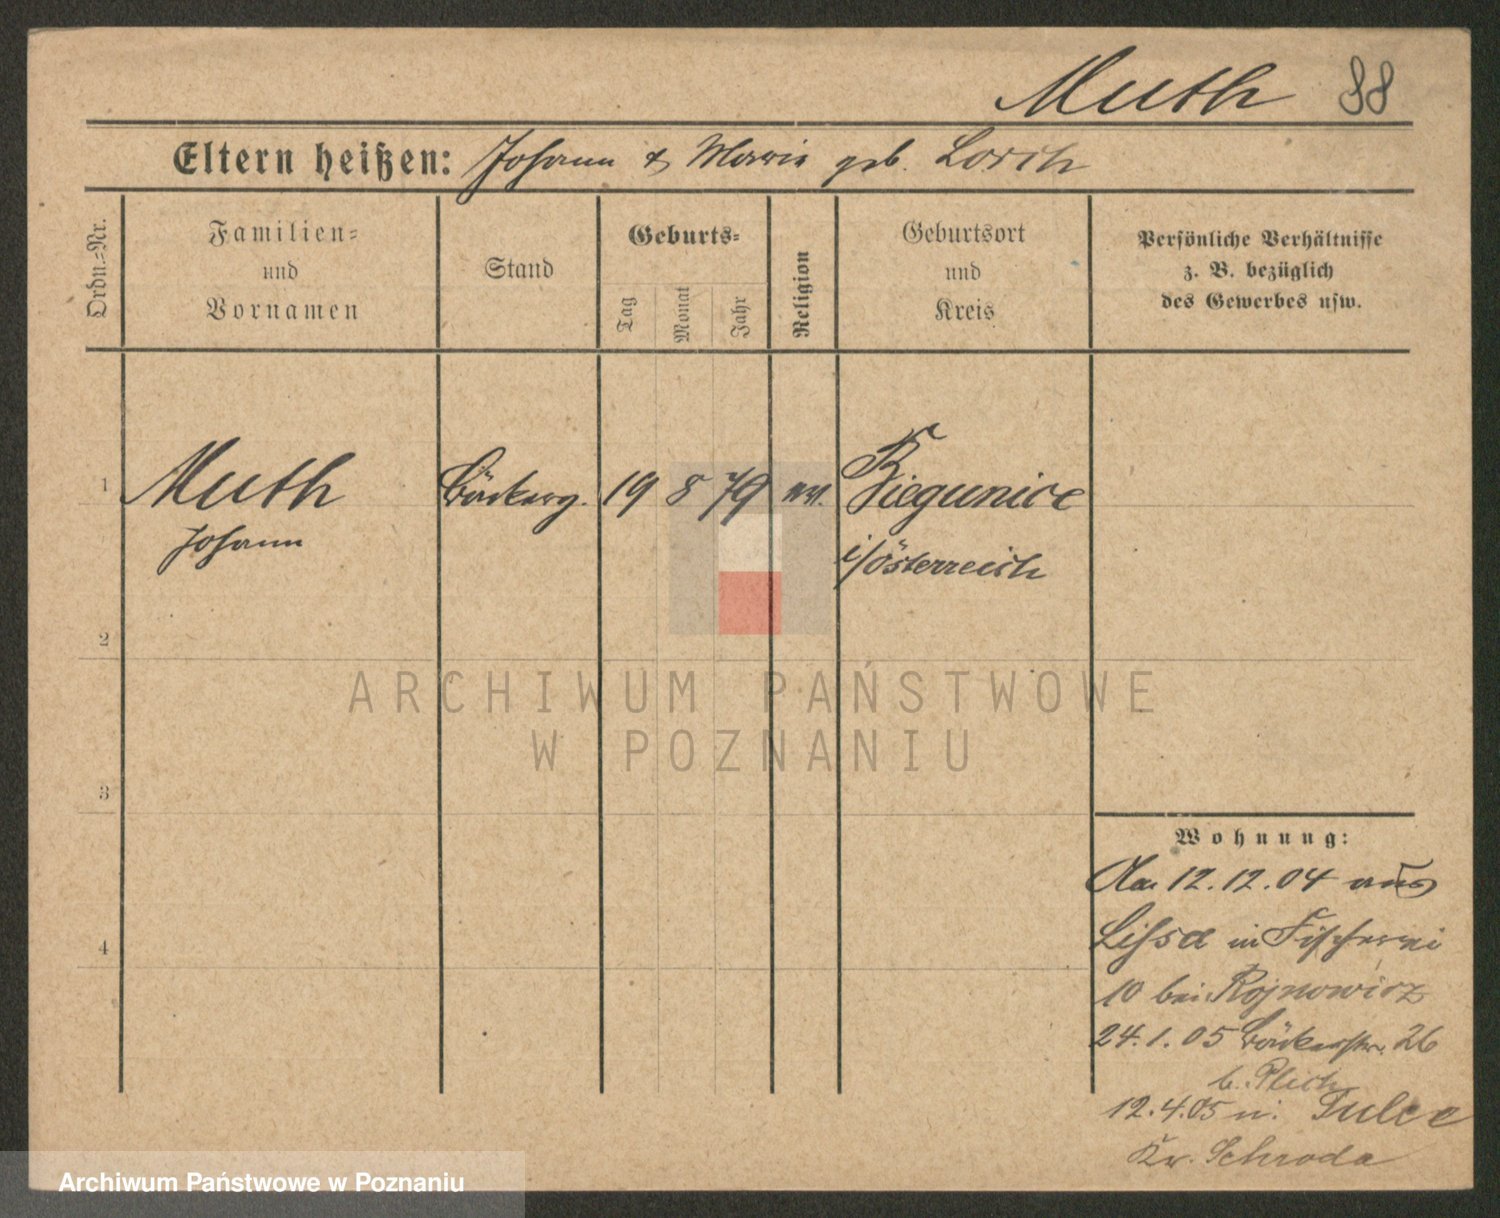 Muth 88
Eltern heißen: Johann & Marie geb. Lorch
Ordn.=Nr.
Familien=
und
Vornamen
Stand
Geburts=
Tag
Monat
Jahr
Religion
Geburtsort
und
Kreis
Persönliche Verhältnisse
z. B. bezüglich
des Gewerbes usw.
1 Muth Bäckerg. 19 8 79 ev.
Johann
i/Österreich
2
3
4
ARCHIWUM PAŃSTWOWE
W POZNANIU
Wohnung:
12.12.04 aus
Lissa in Fischerei
10 bei Rojnowicz
24.1.05 Bäckerstr. 26
12.4.05 n. Tulce
Kr. Schroda
Archiwum Państwowe w Poznaniu